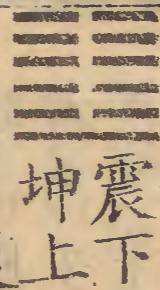 震下
坤上